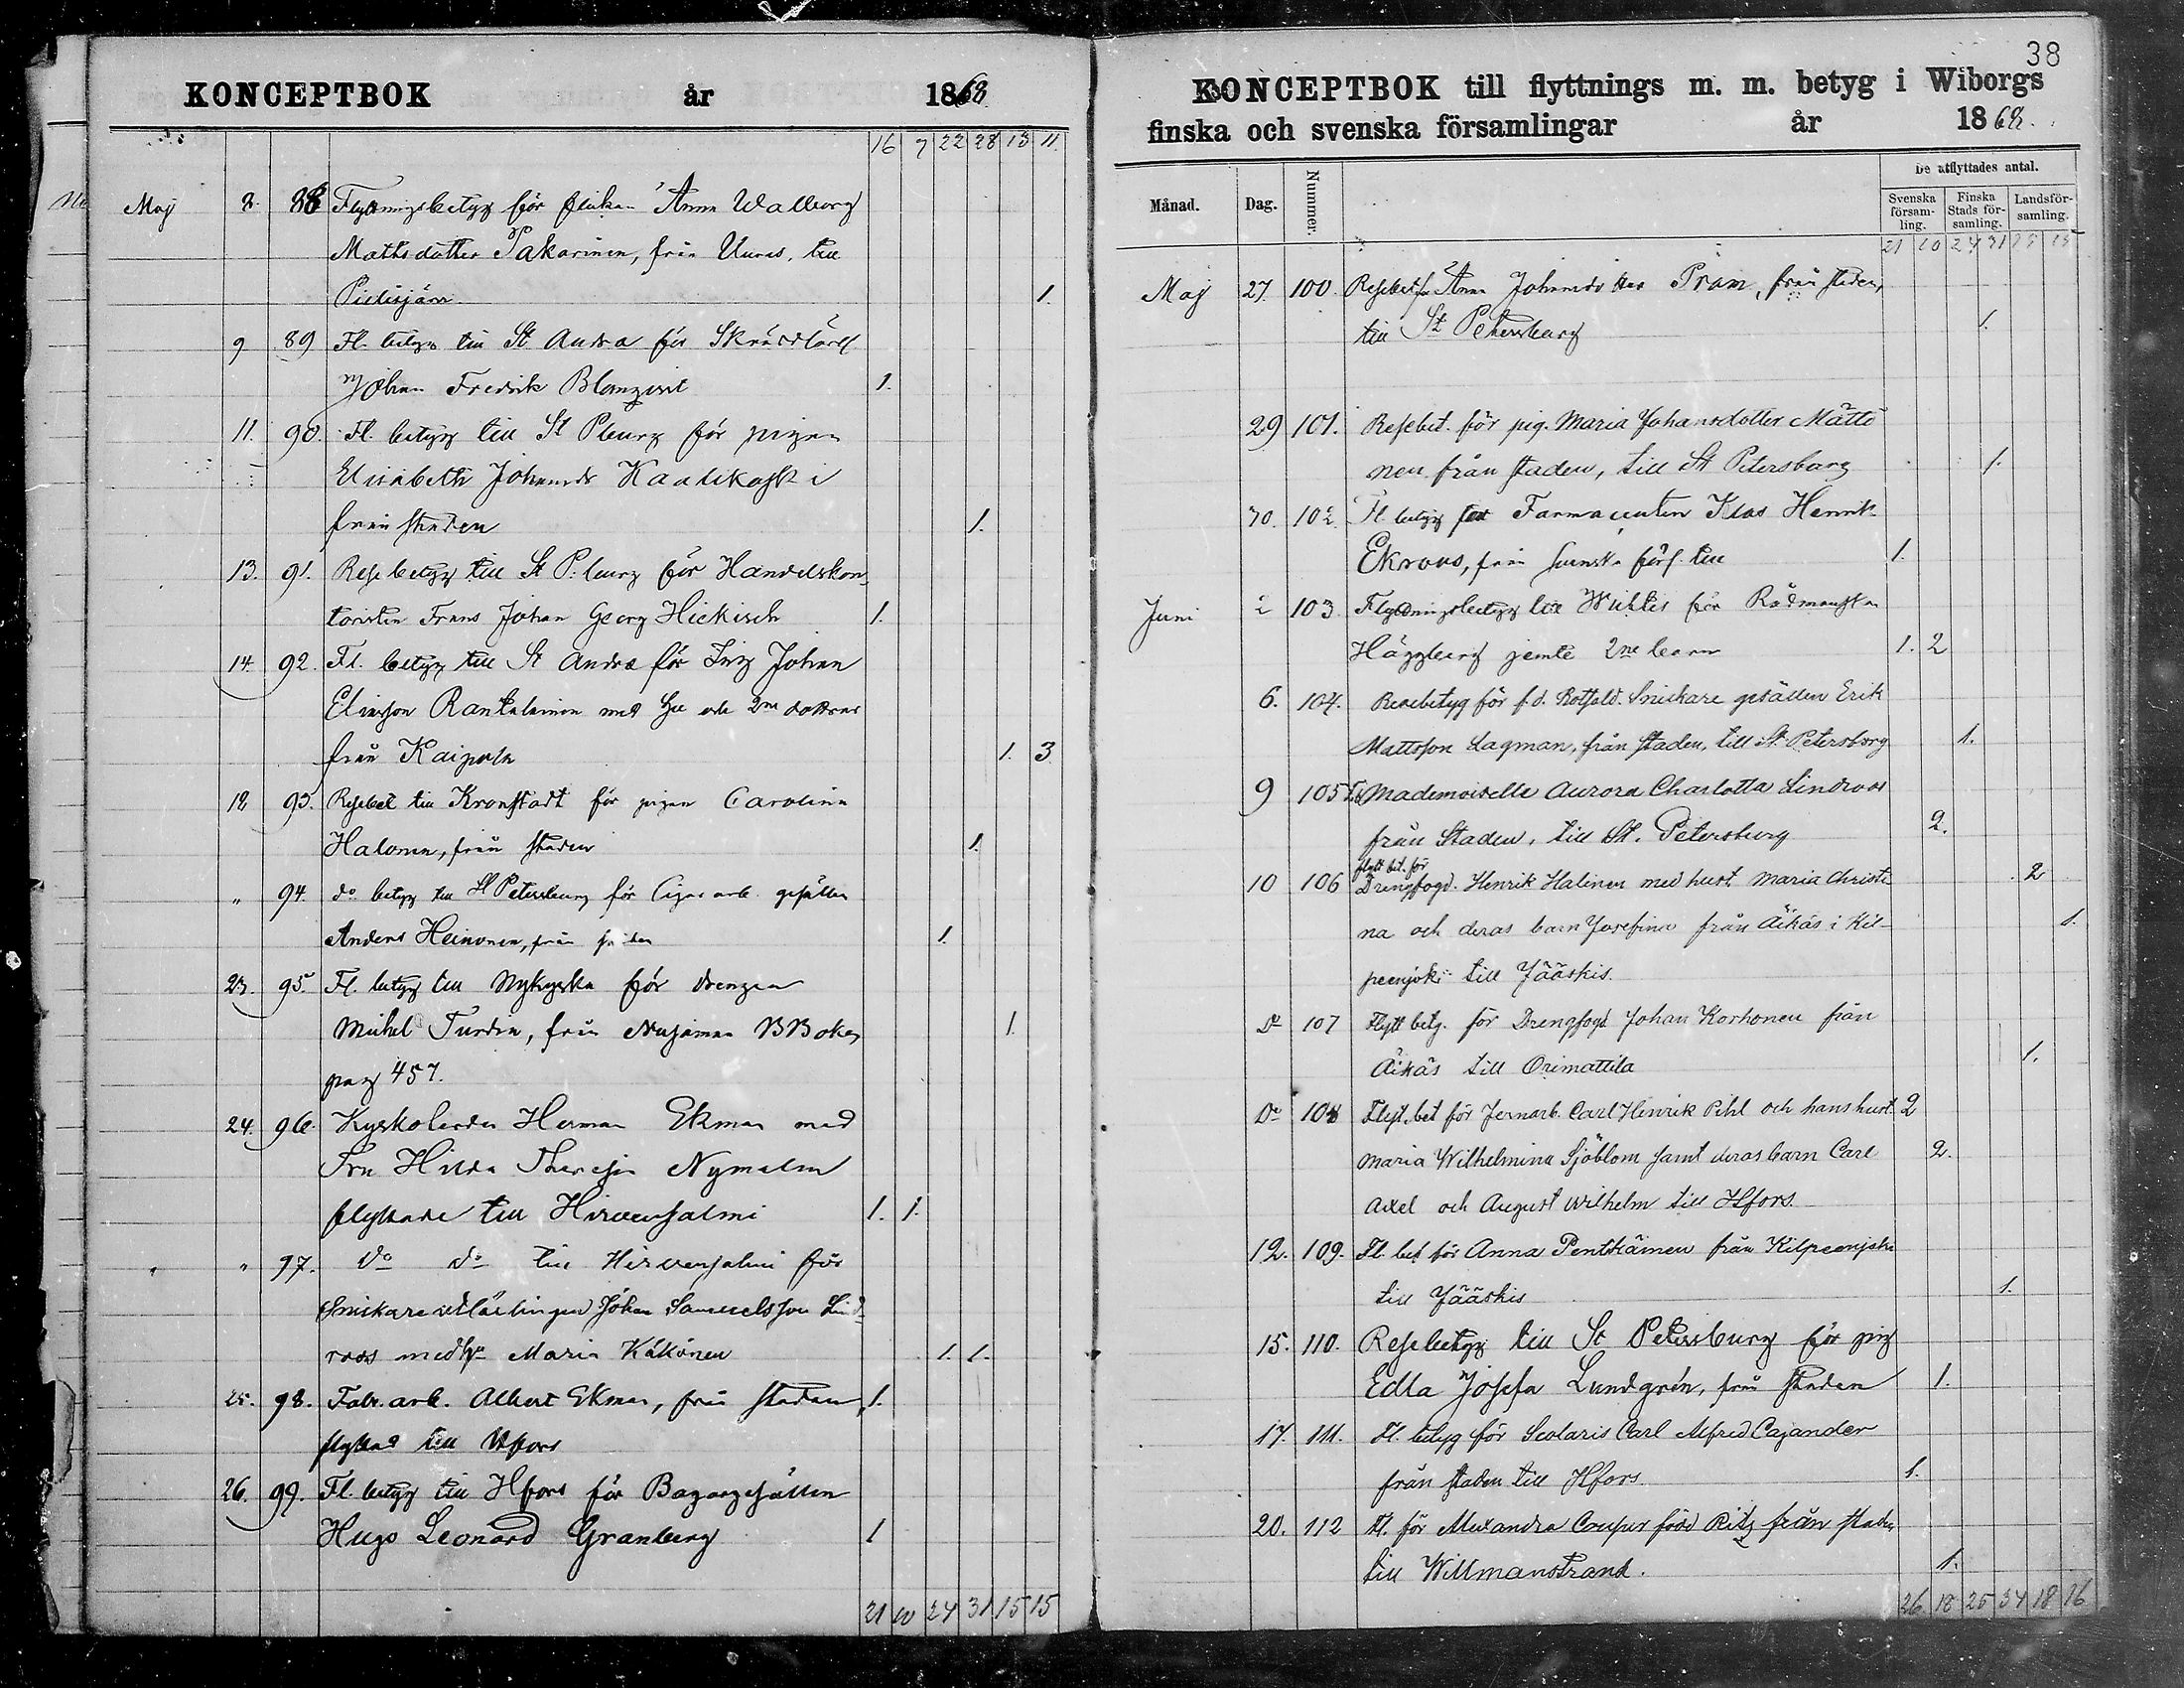 KONCEPTBOK år 1868
16 7 22 28 13 11
Maj 8. 88 Flyttningsbetyg för flickan Anna Walborg
Mattsdotter Pakarinen, från Uuras, till
Pielisjärvi 1.
9 89 Fl. betyg till St Andræ för Skräddlärl.
Johan Fredrik Blomqvist 1.
11. 90. Fl. betyg till St Pburg för pigan
Elisabeth Johansdr
från staden 1.
13. 91. Resebetyg till St P:burg för Handelskon-
toristen Frans Johan Georg Hickisch 1.
14. 92. Fl. betyg till St Andræ för Johan
Eliasson Rantalainen med Hu och 2ne döttrar
från 1. 3
18 93. Resebet till Kronstadt för pigan Carolina
Halonen, från staden 1.
" 94. do betyg till St Petersburg för Cigarr arb. gesällen
Anders Heinonen, från staden 1.
23. 95. Fl. betyg till Nykyrka för drengen
Mickel Turdin, från BBoken
pag 457. 1.
24. 96. Kyrkoherden Herman Ekman med
Fru Hilda Theresia Nymalm
flyttade till Hirvensalmi 1. 1.
" 97. do do till Hirvensalmi för
Snickare utlärlingen Johan Samuelsson Lind-
roos med Hu Maria Käkönen 1. 1.
25. 98. Fabr. arb. Albert Ekman, från staden, 1.
flyttad till Hfors
26. 99. Fl. betyg till Hfors för Bagargesällen
Hugo Leonard Granberg 1
21 10 24 31 15 15
38
KONCEPTBOK till flyttnings m. m. betyg i Wiborgs
finska och svenska församlingar år 1868.
Månad. Dag. Nummer. De utflyttades antal.
Svenska försam-ling. Finska Stads för-samling. Landsför-samling.
21 10 24 31 15 15
Maj 27. 100. Resebet för Anna Johansdotter Pram, från staden,
till St Petersburg 1.
29 101. Resebet. för pig. Maria Johansdotter Mättö
nen från staden, till St Petersburg 1.
30. 102. Fl. betyg för Farmaceuten Klas Henrik
Ekroos, från svenska förs. till 1.
Juni 2 103 Flyttningsbetyg till Wichtis för Rådmanskan
Häggberg jemte 2ne barn 1. 2
6. 104. Resebetyg för f.d. Rotsold. Snickare gesällen Erik
Mattsson Lagman, från staden, till St Petersborg 1.
9 105 Mademoiselle Aurora Charlotta Lindroos
från Staden, till St. Petersburg 2.
flytt bet. för
10 106 Drengfogd. Henrik Halinen med hust. Maria Christi- 2
na och deras barn Josefina från Äikäs i Kil- 1.
peenjoki till Jääskis.
Do 107 Flytt betg. för Drengfogd Johan Korhonen från
Äikäs till Orimattila 1.
Do 108 Flytt. bet för Jernarb. Carl Henrik Pihl och hans hust. 2
Maria Wilhelmina Sjöblom samt deras barn Carl 2.
Axel och August Wilhelm till Hfors.
12. 109. Fl. bet för Anna Penttkäinen från Kilpeenjoki
till Jääskis 1.
15. 110. Resebetyg till St Petersburg för pig
Edla Josefa Lundgrén, från staden 1.
17. 111. Fl. betyg för Scolaris Carl Alfred Cajander
från staden till Hfors. 1.
20. 112 Fl. för Alexandra Couper född Ritz från staden
till Willmanstrand. 1.
26 18 25 34 18 16